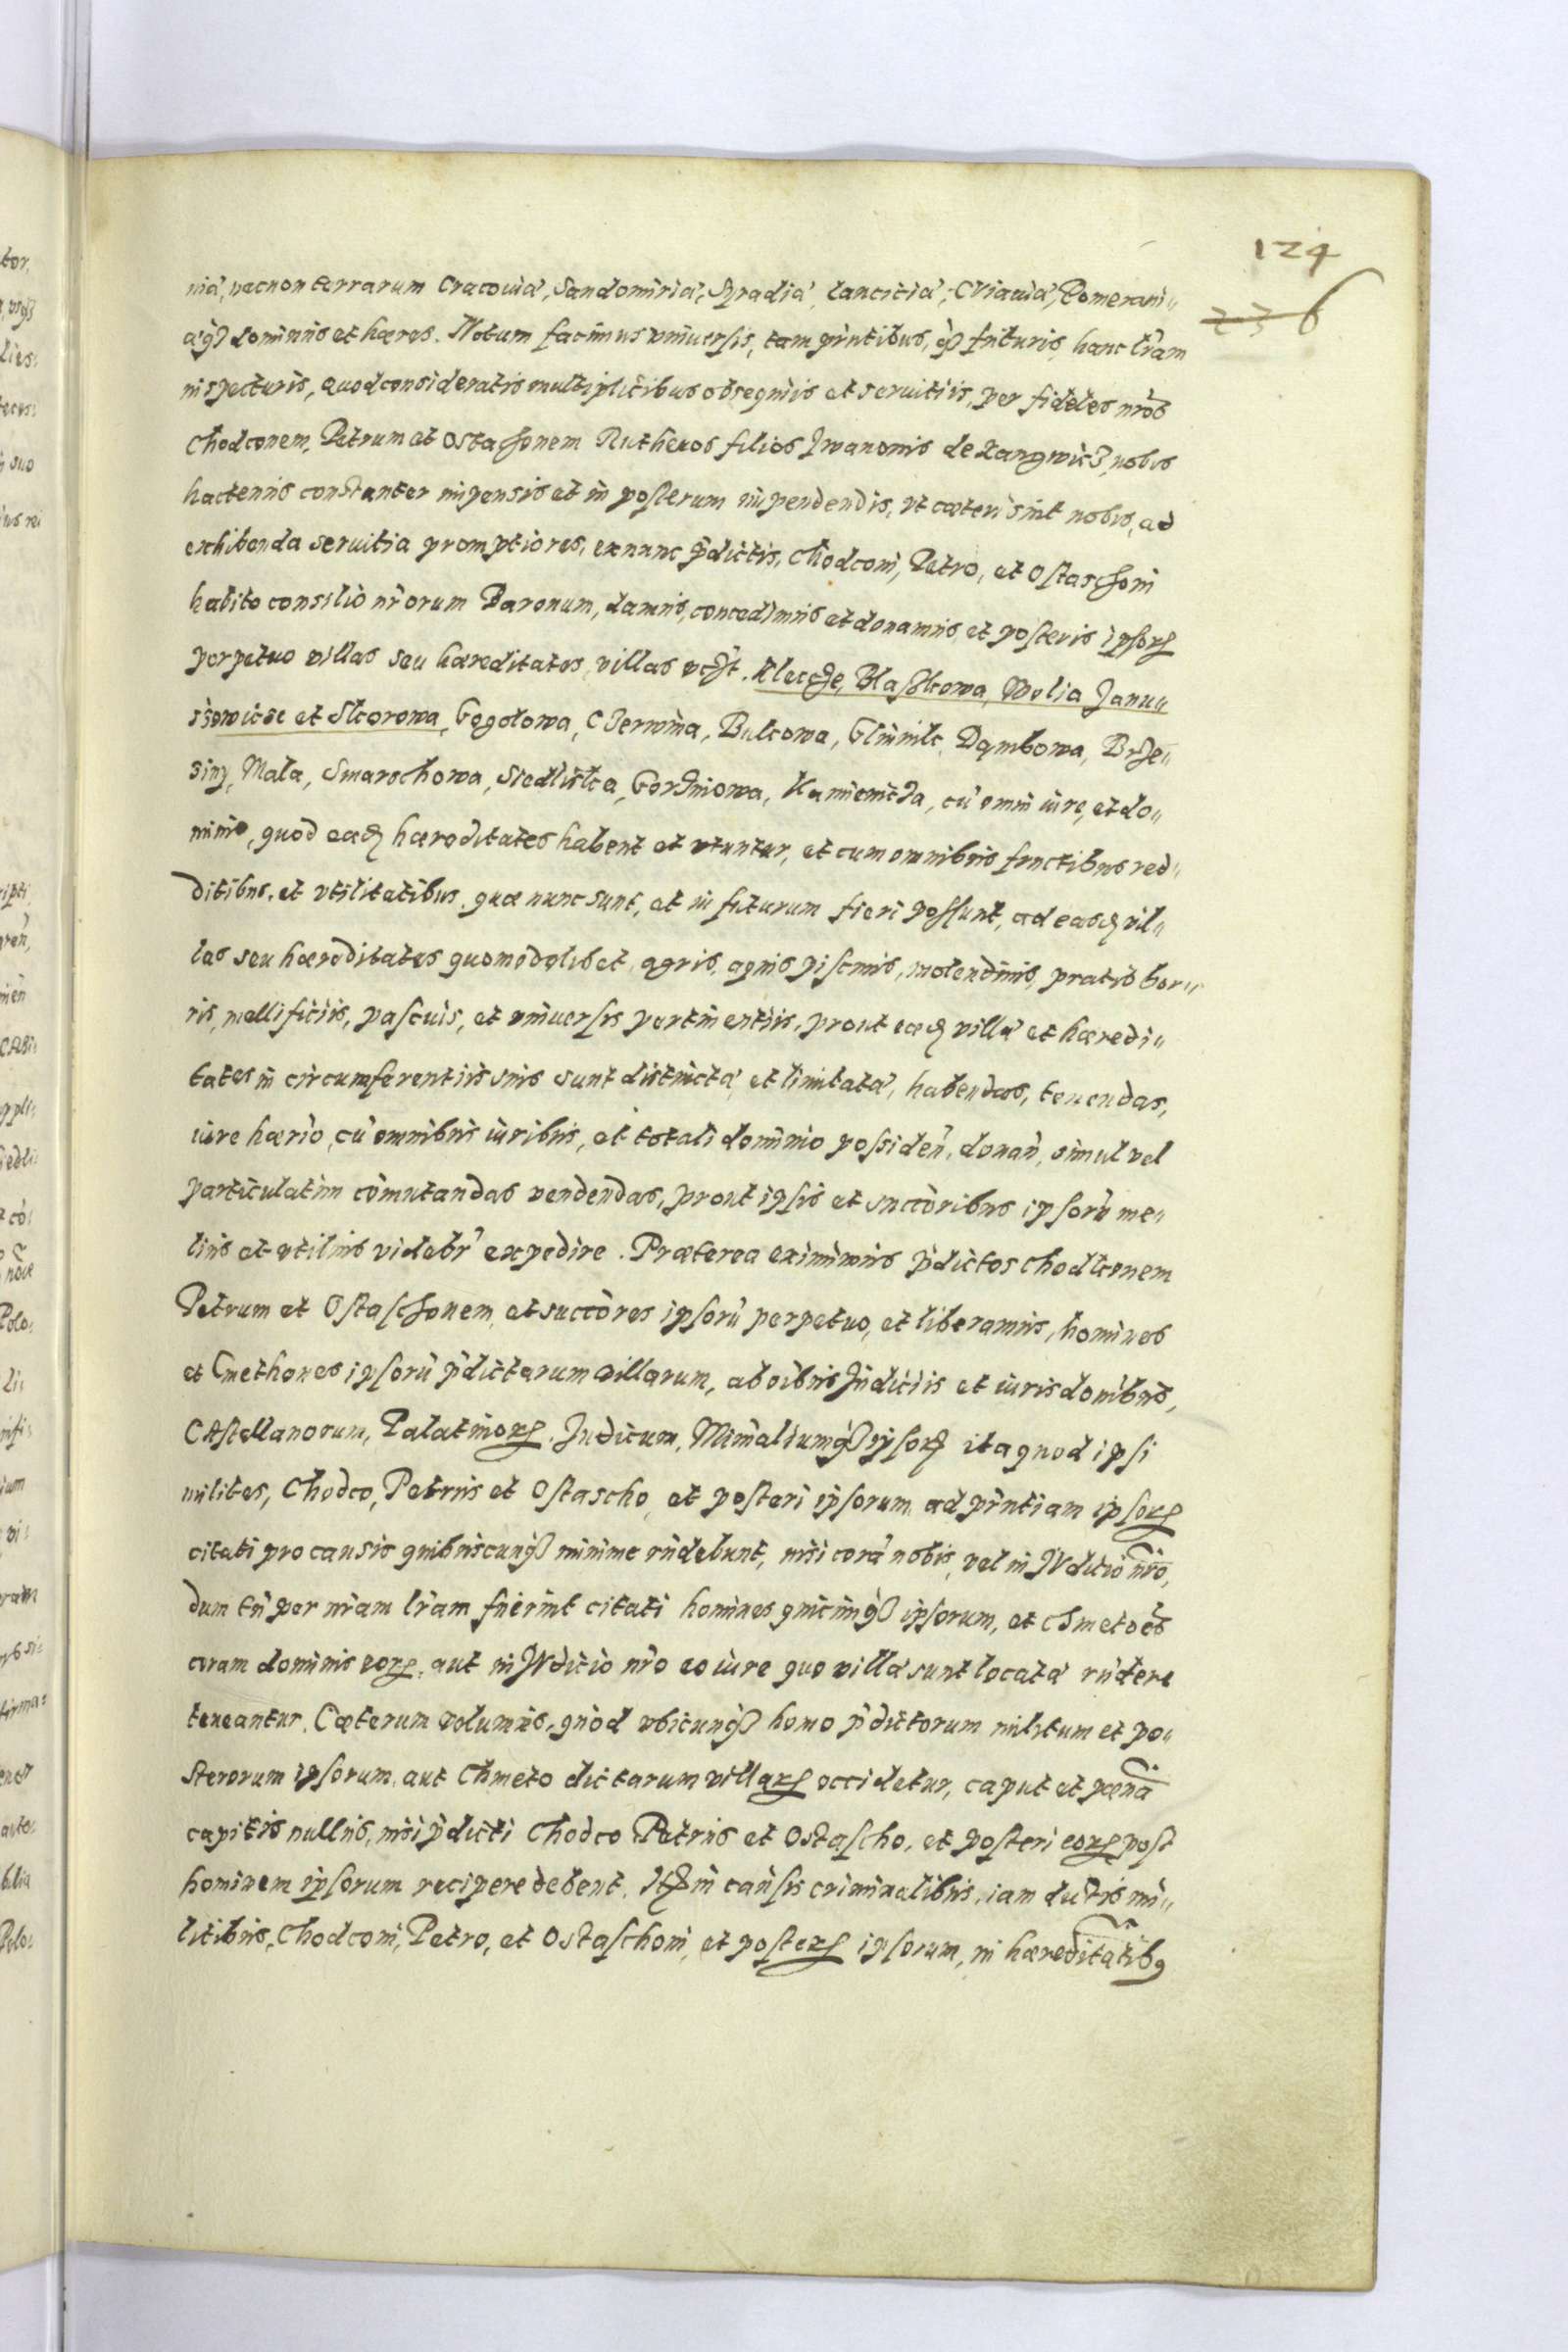 124
236
niæ, necnon terrarum Cracouiæ, Sandomiriæ, Syradiæ, Lanciciæ, CViauiæ, Pomerani„
æq₃ dominus et hæres. Notum facimus vniuersis, tam pn̄tibus, q̄ futuris, hanc lr̄am
inspecturis, quod consideratis multiplicibus obsequiis et seruitiis, per fideles nr̄os
Chodconem, Petrum et Ostaschonem Ruthenos filios Jwanonis de nobis
hactenus constanter impensis et in posterum impendendis, vt cæteri sint nobis, ad
exhibenda seruitia promptiores, exnunc p̄dictis, Chodconi, Petro, et Ostaschoni
habito consilio nr̄orum Baronum, damus, concedimus et donamus et posteris ipsoꝝ
perpetuo villas seu hæreditates, villas vc₃t. Klecze, Blaszkowa, Wolia Janu„
szowicze et Skorowa, Gogolowa, Czerwina, Bukowa, Gliinik, Dąmbowa, Brze„
ziny, Mala, Smarschowa, Siedliska, Gorzniowa, Kamienicza, cū omni iure, et do„
minio, quod eæd₃ hæreditates habent et vtuntur, et cum omnibus fructibus red„
ditibus, et vtilitatibus, quæ nunc sunt, et in futurum fieri possunt, ad easd₃ vil„
las seu hæreditates quomodolibet, agris, aquis piscinis, molendinis, pratis bor„
ris, mellificiis, pascuis, et vniuersis pertinentiis, prout eæd₃ villæ et hæredi„
tates in circumferentiis suis sunt distinctæ et limitatæ, habendas, tenendas,
iure hærio, cū omnibus iuribus, et totali dominio possiden̄, donan̄, simul vel
particulatim com̄utandas vendendas, prout ipsis et succōribus ipsorū me„
lius et vtilius videbr̄ expedire. Præterea eximimus p̄dictos Chodkonem
Petrum et Ostaschonem, et succōres ipsorū perpetuo, et liberamus, homines
et Cmethones ipsorū p̄dictarum villarum, ab oībus Judiciis et iurisdōnibus,
CAstellanorum, Palatinoꝝ, Judicum, Min̄aliumq₃ ipsoꝝ ita quod ipsi
milites, Chodco, Petrus et Ostascho, et posteri ipsorum, ad pn̄tiam ipsoꝝ
citati pro causis quibuscunq₃ minime rn̄debunt, nisi corā nobis, vel in JVdicio nr̄o,
dum tn̄ per nr̄am lr̄am fuerint citati homines quicunq₃ ipsorum, et Chmetoēs
coram dominis eoꝝ, aut in JVdicio nr̄o eo iure quo villæ sunt locatæ rn̄dere
teneantur. Cæterum volumus, quod vbicunq₃ homo p̄dictorum militum et po„
sterorum ipsorum, aut Chmeto dictarum villaꝝ occidetur, caput et pœnā
capitis nullus, nisi p̄dicti Chodco Petrus et Ostascho, et posteri eoꝝ post
hominem ipsorum recipere debent. It₃ in causis criminalibus, iam dictis mi„
litibus, Chodconi, Petro, et Ostaschoni, et posteꝝ ipsorum, in hæreditatib₉